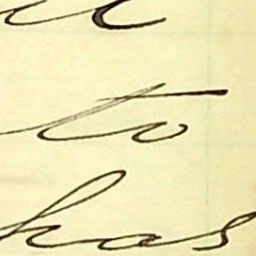 to
has